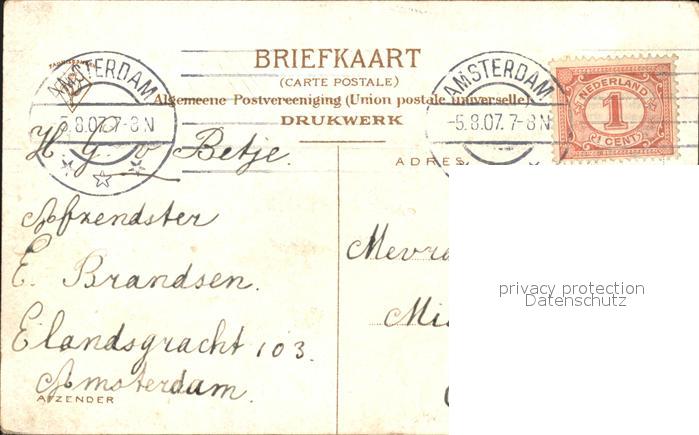 BRIEFKAART
(CARTE POSTALE)
Algemeene Postvereeniging (Union postale universelle).
DRUKWERK
AMSTERDAM
5.8.07.7-8N
AMSTERDAM
-5.8.07.7-8N
NEDERLAND
1
1 CENT
H. G. v. Betje.
ADRES
Afzendster
E. Brandsen.
Elandsgracht 103.
Amsterdam.
AFZENDER
Mevr
Mi
privacy protection
Datenschutz